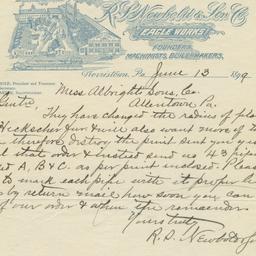 R. S. Newbold & Son Co.
EAGLE WORKS
FOUNDERS,
MACHINISTS, BOILERMAKERS,
Norristown, Pa. June 13 189
Mess Albright Sons, Co.
Allentown Pa.
Gents
They have changed the radius of
Heckscher fur & we also want more of
therefore destroy the print sent you
that order & instead send us 43
A, B & C. as per print inclosed.
to mark each pipe with it
by return mail how soon you can
of our order & when the remainder
Yours truly
R. S. Newbold